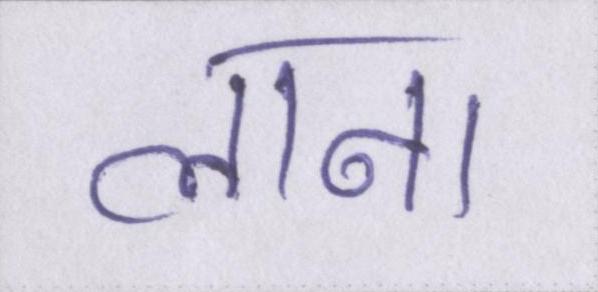 लाना